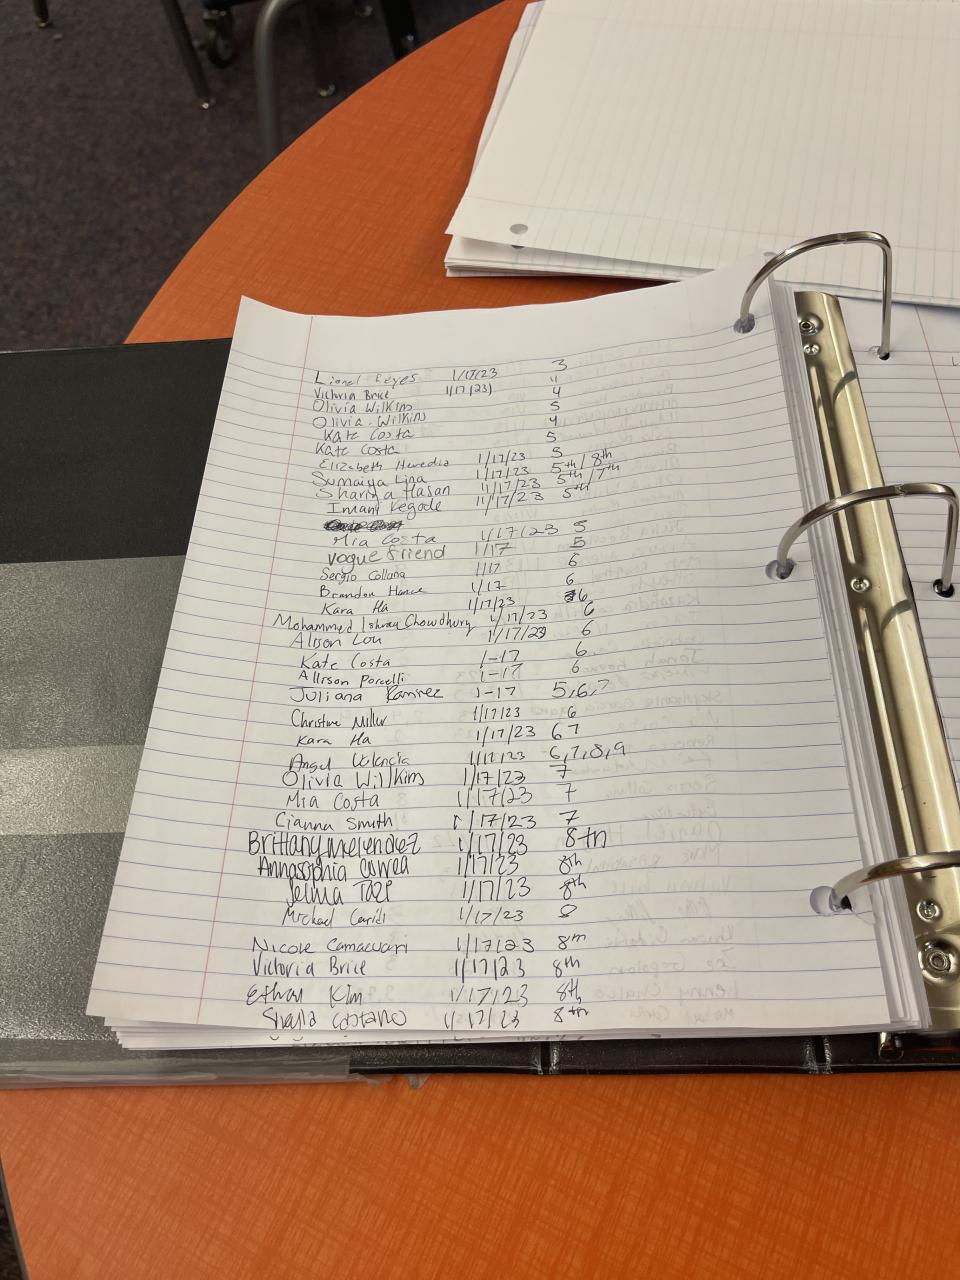 Lionel Reyes 1/17/23 3
Victoria Brice 1/17/23 4
Olivia Wilkins 4
Olivia Wilkins 5
Kate Costa 4
Kate Costa 5
Elizabeth Heredia 1/17/23 5
Sumaiya Lina 1/17/23 5th/8th
Shariya Hasan 1/17/23 5th/7th
Imani Kegode 1/17/23 5th
Mia Costa 1/17/23 5
vogue friend 1/17 5
Sergio Collana 1/17 6
Brandon Hance 1/17 6
Kara Ha 1/17/23 6
Mohammed Ishraq Chowdhury 1/17/23 6
Alison Lou 1/17/23 6
Kate Costa 1-17 6
Allison Porcelli 1-17 6
Juliana Ramirez 1-17 5,6,7
Christine Miller 1/17/23 6
Kara Ha 1/17/23 6 7
Angel Valencia 1/17/23 6,7,8,9
Olivia Wilkins 1/17/23 7
Mia Costa 1/17/23 7
Cianna Smith 1/17/23 7
Brittany Melendez 1/17/23 8th
Annasophia Correa 1/17/23 8th
Selma 1/17/23 8th
Michael 1/17/23 8
Nicole 1/17/23 8th
Victoria Brice 1/17/23 8th
Ethan Kim 1/17/23 8th
Shayla 1/17/23 8th